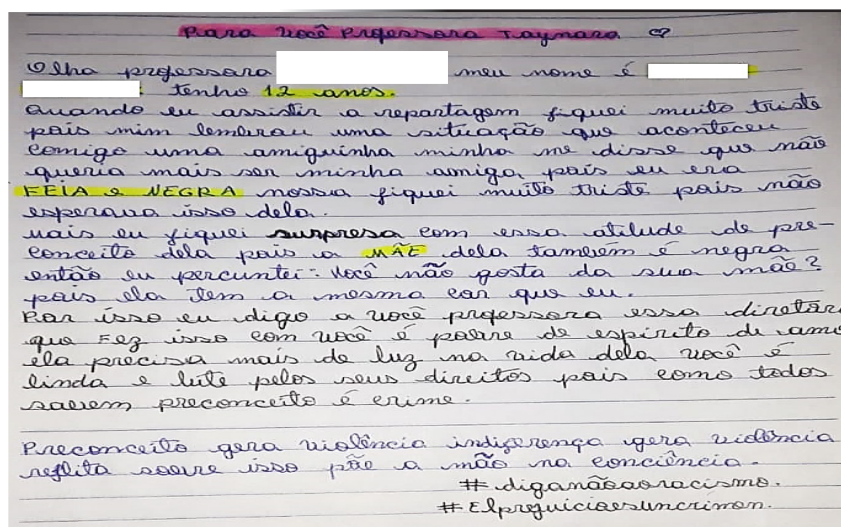 Para você Professora Taynara ♡
Olha professora meu nome é
tenho 12 anos.
Quando eu assistir a repartagem fiquei muito triste
pois mim lembrou uma situação que aconteceu
comigo uma amiguinha minha me disse que não
queria mais ser minha amiga pois eu era
FEIA e NEGRA nossa fiquei muito triste pois não
esperava isso dela.
Mais eu fiquei surpresa com essa atitude de pre-
conceito dela pois a MÃE dela também é negra
então eu percuntei: Você não gosta da sua mãe?
pois ela tem a mesma cor que eu.
Por isso eu digo a você professora essa diretora
que Fez isso com você é pobre de espirito de amo
ela precisa mais de luz na vida dela você é
linda e lute pelos seus direitos pois como todos
sabem preconceito é crime.
Preconceito gera violência indiferença gera violência
reflita sobre isso põe a mão na conciência.
#diganãoaoracismo.
#Elprejuicioesuncrimen.